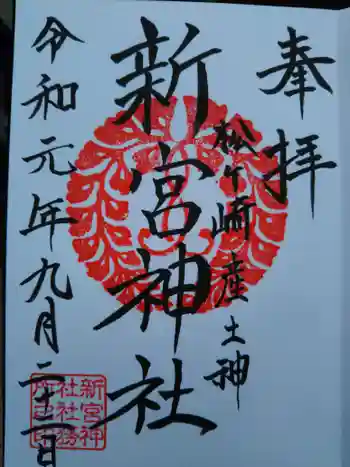 奉拝
松ヶ崎産土神
新宮神社
令和元年九月二十二日
新宮神
社社務
所之印